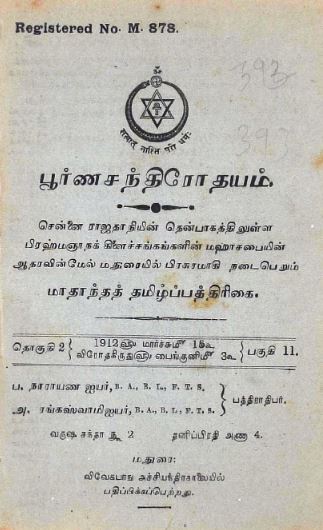 Registered No. M. 878.
393
சத்யாத் நாஸ்தி பரோ தர்ம:
பூர்ணசந்திரோதயம்.
சென்னை ராஜதானியின் தென்பாகத்திலுள்ள
பிரஹ்மஞானக் கிளைச்சங்கங்களின் மஹாசபையின்
ஆதரவின்மேல் மதுரையில் பிரசுரமாகி நடைபெறும்
மாதாந்தத் தமிழ்ப்பத்திரிகை.
தொகுதி 2 { 1912௵ மார்ச்சு௴ 15௳ } பகுதி 11.
விரோதகிருது௵ பைங்குனி௴ 3௳
ப. நாராயண ஐயர், B. A., B. L., F. T. S. } பத்திராதிபர்.
அ. ரங்கஸ்வாமிஐயர், B. A., B. L., F. T. S.
வருஷ சந்தா ரூ 2 தனிப்பிரதி அணா 4.
மதுரை:
விவேகபாநு அச்சியந்திரசாலையில்
பதிப்பிக்கப்பெற்றது.